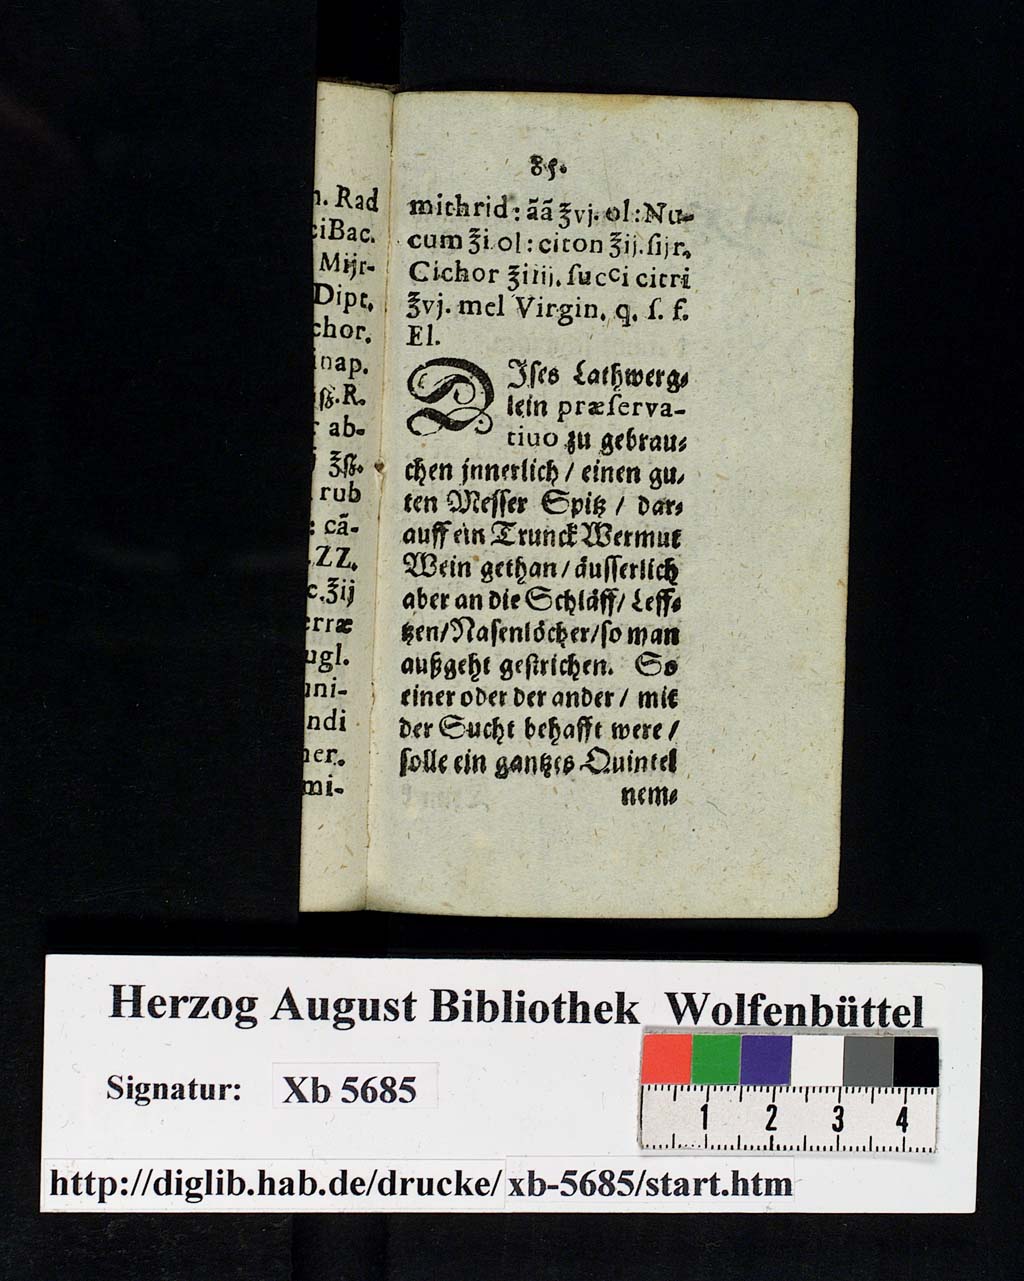 n. Rad
ciBac.
Mijr-
Dipt.
chor.
inap.
ʒß.R.
ab-
ʒß.
rub
: cã-
.ZZ.
c.ʒij
erræ
ugl.
ni-
ndi
er.
mi-
85.
mithrid: ãã ʒvj. ol: Nu-
cum ʒi ol: citon ʒij. ſijr.
Cichor ʒiiij. ſucci citri
ʒvj. mel Virgin. q. ſ. f.
El.
DIſes Lathwerg⸗
lein præſerva-
tiuo zu gebrau⸗
chen jnnerlich / einen gu⸗
ten Meſſer Spitz / dar⸗
auff ein Trunck Wermut
Wein gethan / äuſſerlich
aber an die Schläff / Leff⸗
tzen / Naſenlöcher / ſo man
außgeht geſtrichen. So
einer oder der ander / mit
der Sucht behafft were /
ſolle ein gantzes Quintel
nem⸗
Herzog August Bibliothek Wolfenbüttel
Signatur: Xb 5685
1 2 3 4
http://diglib.hab.de/drucke/xb-5685/start.htm